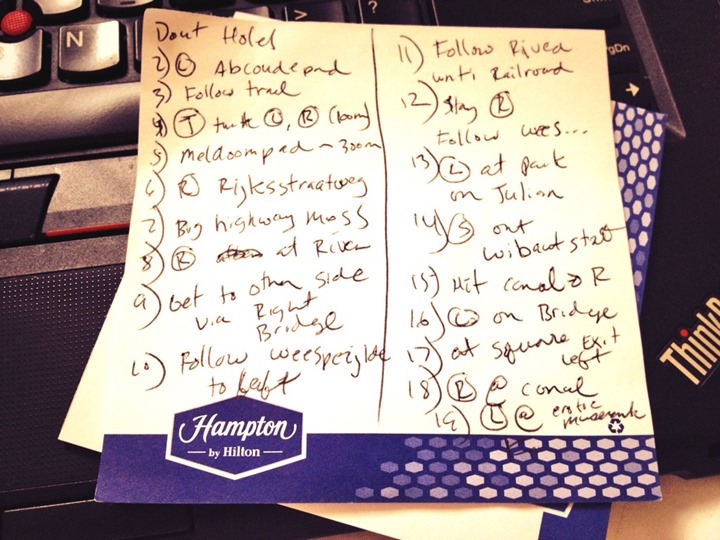 Out Hotel
2) L Abcoudepad
3) Follow trail
4) T turn L, R (100m)
5) Meldoornpad ~ 300m
6) R Rijksstraatweg
7) Big highway mass
8) R at River
9) Get to other side
via Right
Bridge
10) Follow weespeizijde
to Left
11) Follow River
until Railroad
12) stay R
Follow wees...
13) L at park
on Julian
14) S ont
wibautstraat
15) Hit canal → R
16) L on Bridge
17) at square Exit
Left
18) R @ canal
19) L @ erotic
museum
Hampton
by Hilton
N
?
>
gDn
ThinkP